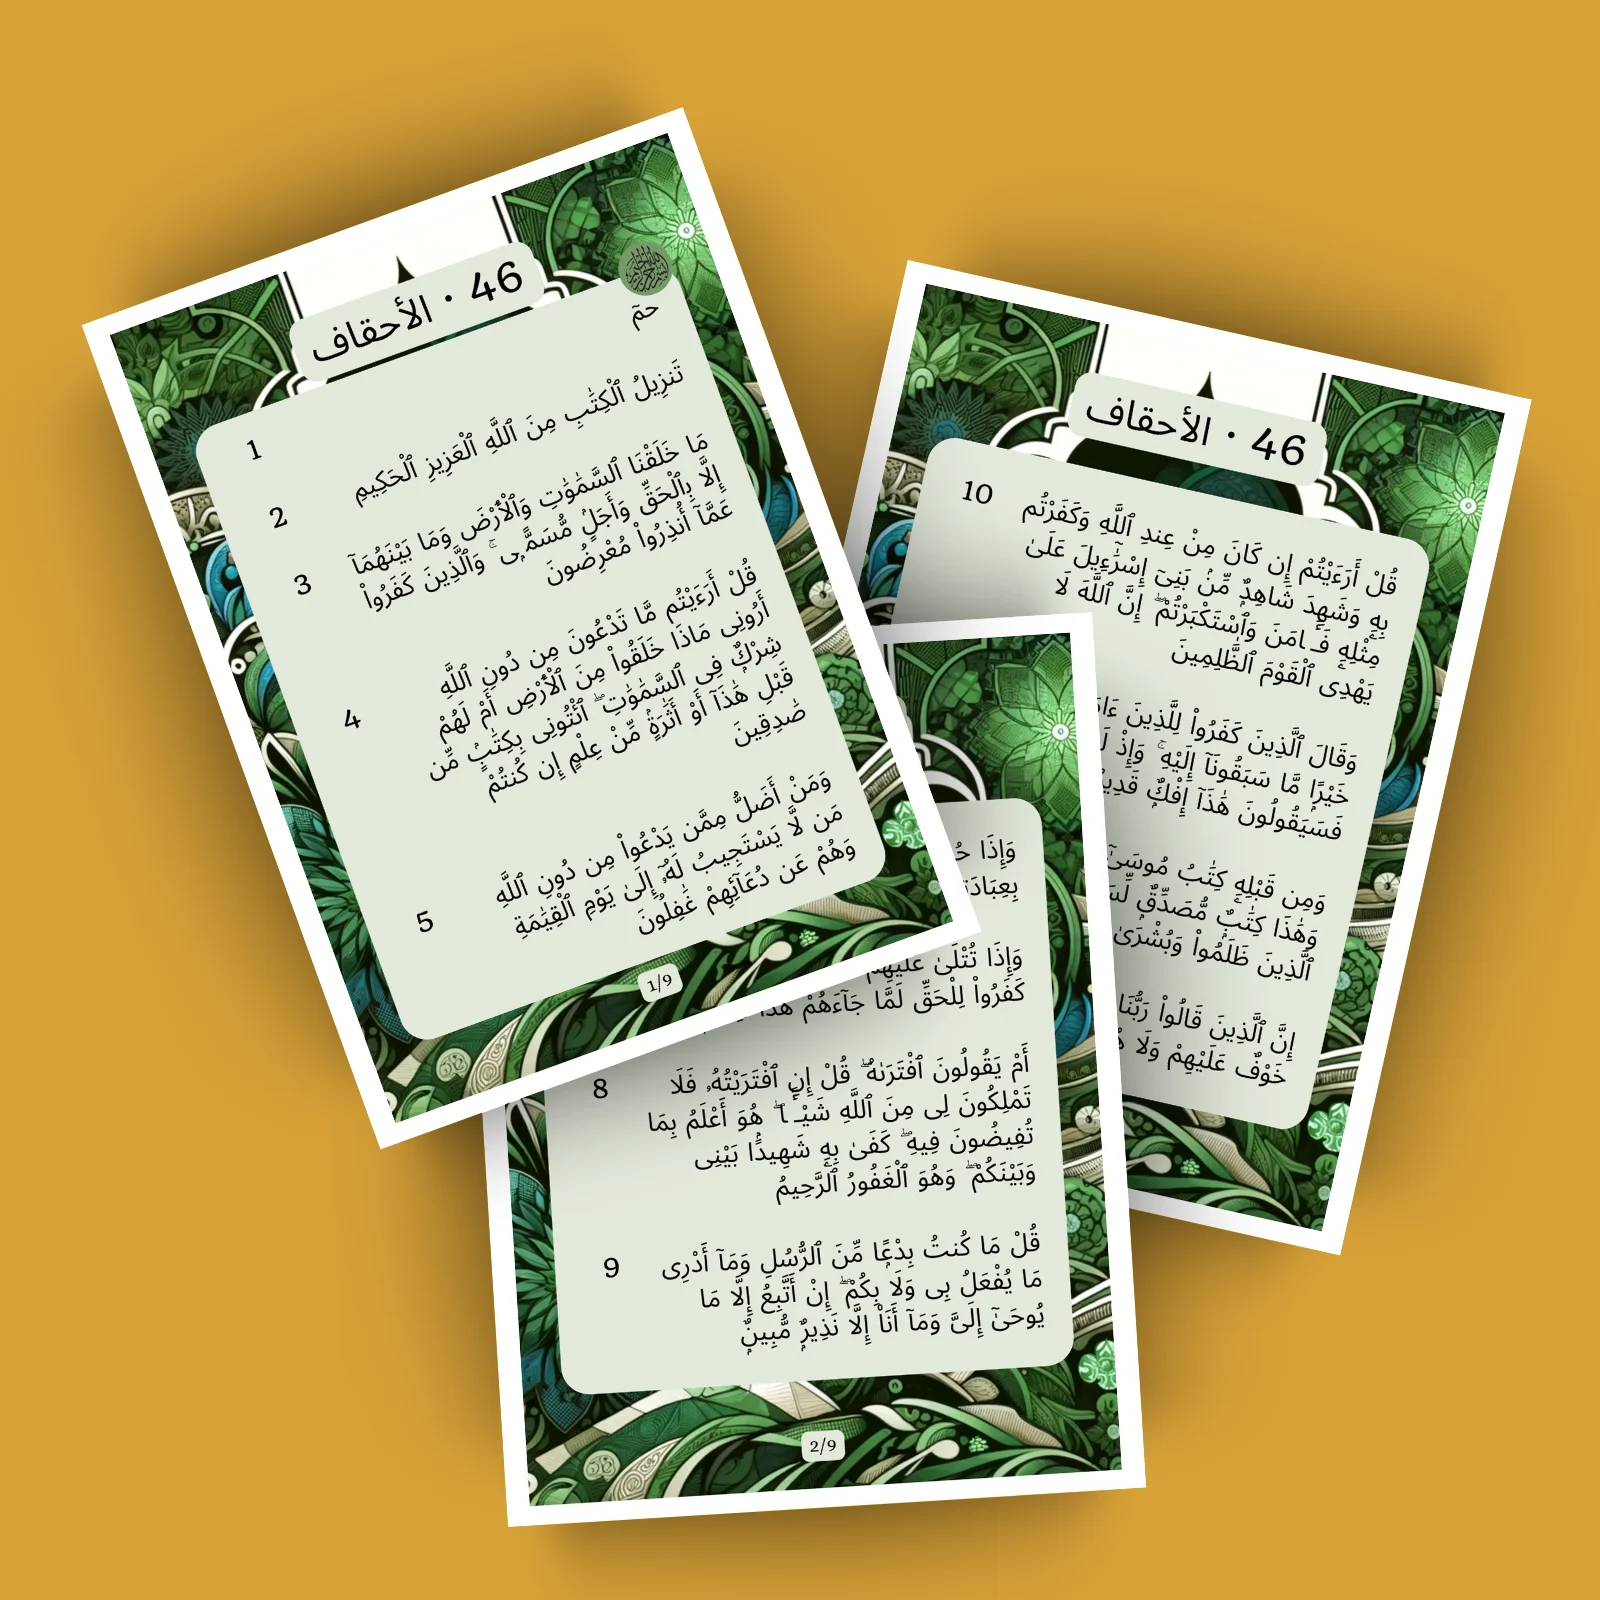 46 · الأحقاف
حمٓ
1
تَنزِيلُ ٱلْكِتَٰبِ مِنَ ٱللَّهِ ٱلْعَزِيزِ ٱلْحَكِيمِ
2
مَا خَلَقْنَا ٱلسَّمَٰوَٰتِ وَٱلْأَرْضَ وَمَا بَيْنَهُمَآ
إِلَّا بِٱلْحَقِّ وَأَجَلٍ مُّسَمًّى ۚ وَٱلَّذِينَ كَفَرُوا۟
عَمَّآ أُنذِرُوا۟ مُعْرِضُونَ
3
قُلْ أَرَءَيْتُم مَّا تَدْعُونَ مِن دُونِ ٱللَّهِ
أَرُونِى مَاذَا خَلَقُوا۟ مِنَ ٱلْأَرْضِ أَمْ لَهُمْ
شِرْكٌ فِى ٱلسَّمَٰوَٰتِ ۖ ٱئْتُونِى بِكِتَٰبٍ مِّن
قَبْلِ هَٰذَآ أَوْ أَثَٰرَةٍ مِّنْ عِلْمٍ إِن كُنتُمْ
صَٰدِقِينَ
4
وَمَنْ أَضَلُّ مِمَّن يَدْعُوا۟ مِن دُونِ ٱللَّهِ
مَن لَّا يَسْتَجِيبُ لَهُۥٓ إِلَىٰ يَوْمِ ٱلْقِيَٰمَةِ
وَهُمْ عَن دُعَآئِهِمْ غَٰفِلُونَ
5
1/9
وَإِذَا
وَإِذَا تُتْلَىٰ عَلَيْهِمْ
كَفَرُوا۟ لِلْحَقِّ لَمَّا جَآءَهُمْ هَٰذَا
أَمْ يَقُولُونَ ٱفْتَرَىٰهُ ۖ قُلْ إِنِ ٱفْتَرَيْتُهُۥ فَلَا
تَمْلِكُونَ لِى مِنَ ٱللَّهِ شَيْـًٔا ۖ هُوَ أَعْلَمُ بِمَا
تُفِيضُونَ فِيهِ ۖ كَفَىٰ بِهِۦ شَهِيدًۢا بَيْنِى
وَبَيْنَكُمْ ۖ وَهُوَ ٱلْغَفُورُ ٱلرَّحِيمُ
8
قُلْ مَا كُنتُ بِدْعًا مِّنَ ٱلرُّسُلِ وَمَآ أَدْرِى
مَا يُفْعَلُ بِى وَلَا بِكُمْ ۖ إِنْ أَتَّبِعُ إِلَّا مَا
يُوحَىٰٓ إِلَىَّ وَمَآ أَنَا۠ إِلَّا نَذِيرٌ مُّبِينٌ
9
2/9
46 · الأحقاف
قُلْ أَرَءَيْتُمْ إِن كَانَ مِنْ عِندِ ٱللَّهِ وَكَفَرْتُم
بِهِۦ وَشَهِدَ شَاهِدٌ مِّنۢ بَنِىٓ إِسْرَٰٓءِيلَ عَلَىٰ
مِثْلِهِۦ فَـَٔامَنَ وَٱسْتَكْبَرْتُمْ ۖ إِنَّ ٱللَّهَ لَا
يَهْدِى ٱلْقَوْمَ ٱلظَّٰلِمِينَ
10
وَقَالَ ٱلَّذِينَ كَفَرُوا۟ لِلَّذِينَ
خَيْرًا مَّا سَبَقُونَآ إِلَيْهِ ۚ وَإِذْ
فَسَيَقُولُونَ هَٰذَآ إِفْكٌ
وَمِن قَبْلِهِۦ كِتَٰبُ مُوسَىٰٓ
وَهَٰذَا كِتَٰبٌ مُّصَدِّقٌ
ٱلَّذِينَ ظَلَمُوا۟ وَبُشْرَىٰ
إِنَّ ٱلَّذِينَ قَالُوا۟ رَبُّنَا
خَوْفٌ عَلَيْهِمْ وَلَا